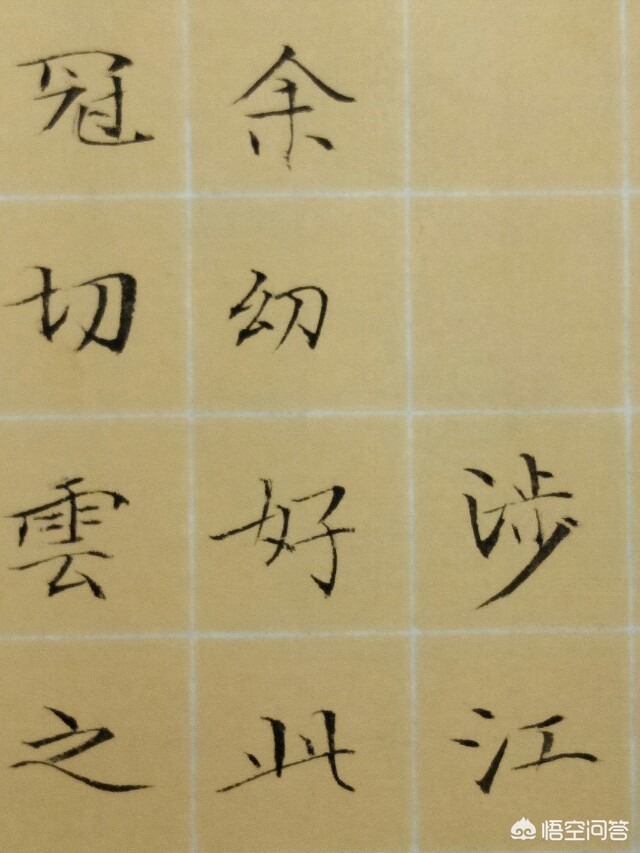 涉江
余幼好此
冠切雲之
悟空问答